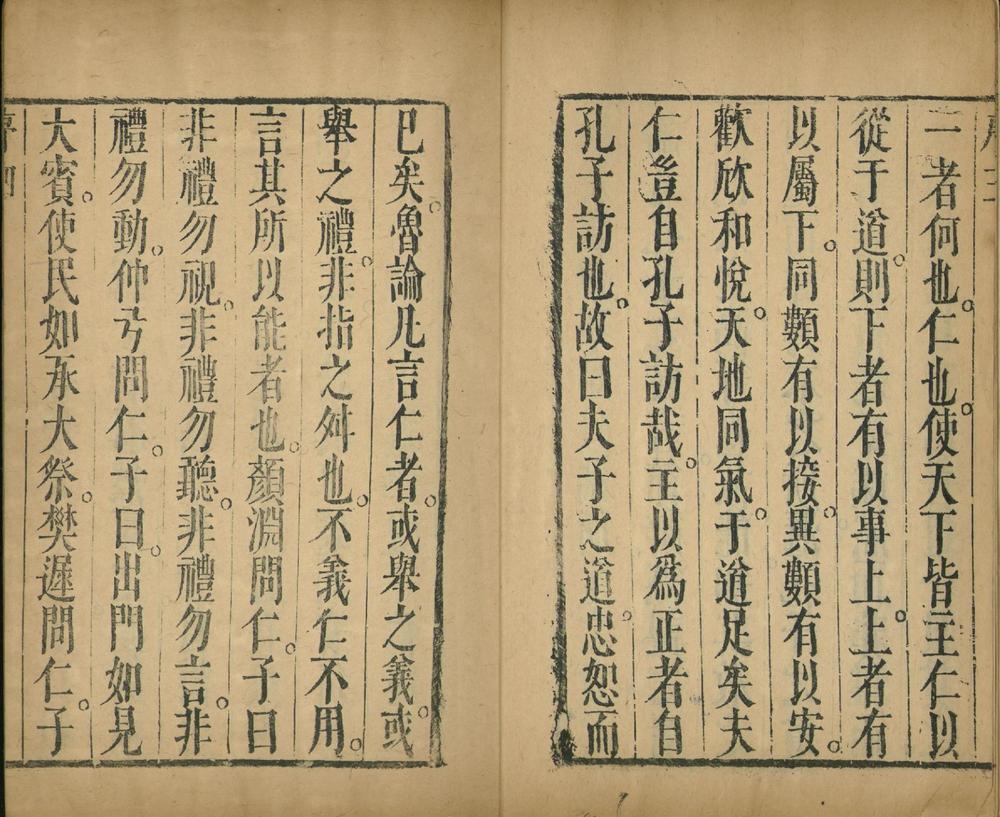 一者何也。仁也。使天下皆主仁以
從于道。則下者有以事上。上者有
以屬下。同類有以接。異類有以安。
歡欣和悅。天地同氣。于道足矣夫
仁豈自孔子訪哉。主以爲正者自
孔子訪也。故曰夫子之道。忠恕而
已矣。魯論凡言仁者。或舉之義。或
舉之禮。非指之舛也。不義仁不用。
言其所以能者也。顏淵問仁。子曰
非禮勿視。非禮勿聽。非禮勿言。非
禮勿動。仲弓問仁。子曰。出門如見
大賓。使民如承大祭。樊遲問仁。子